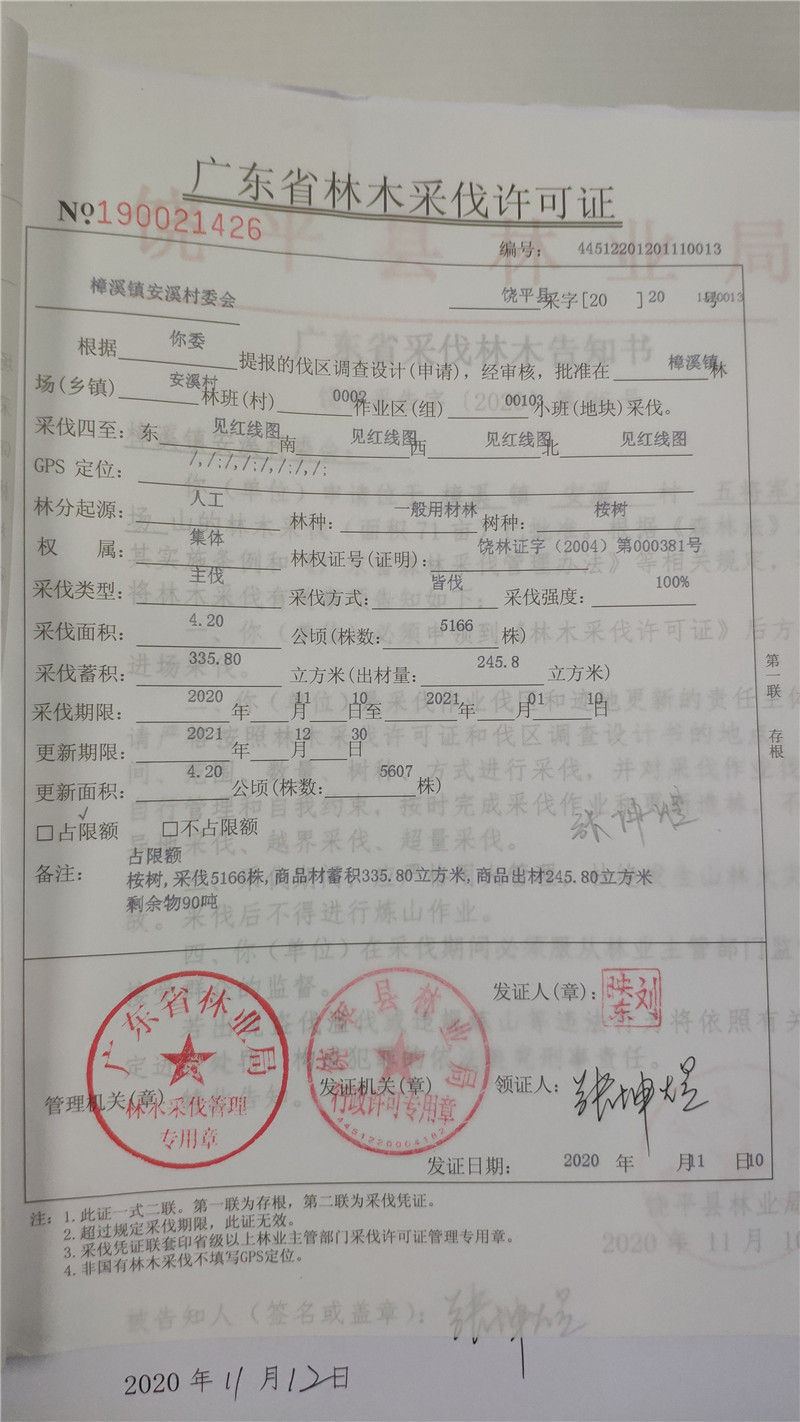 广东省林木采伐许可证
№190021426
编号: 44512201201110013
樟溪镇安溪村委会
饶平县采字[20 ]20 号
根据你委提报的伐区调查设计(申请),经审核,批准在樟溪镇林
场(乡镇)安溪村林班(村)0002作业区(组)00103小班(地块)采伐。
采伐四至:东见红线图南见红线图西见红线图北见红线图
GPS 定位: /,/:/,/:/,/:/,/:
林分起源:人工 林种:一般用材林 树种:桉树
权 属:集体 林权证号(证明):饶林证字(2004)第000381号
采伐类型:主伐 采伐方式:皆伐 采伐强度:100%
采伐面积:4.20公顷(株数:5166株)
采伐蓄积:335.80立方米(出材量:245.8立方米)
采伐期限:2020年11月10日至2021年01月10日
更新期限:2021年12月30日
更新面积:4.20公顷(株数:5607株)
✓
□占限额 □不占限额
备注:占限额
桉树,采伐5166株,商品材蓄积335.80立方米,商品出材245.80立方米
剩余物90吨
第一联 存根
广东省林业局
林木采伐管理
专用章
管理机关(章)
饶平县林业局
行政许可专用章
4451220004182
发证机关(章)
发证人(章):
刘映东
领证人:张坤煜
发证日期: 2020 年 月11 日10
注: 1.此证一式二联。第一联为存根,第二联为采伐凭证。
2.超过规定采伐期限,此证无效。
3.采伐凭证联套印省级以上林业主管部门采伐许可证管理专用章。
4.非国有林木采伐不填写GPS定位。
饶平县林业局
2020 年 11 月 10
被告知人(签名或盖章):张坤煜
2020 年 11 月 12日